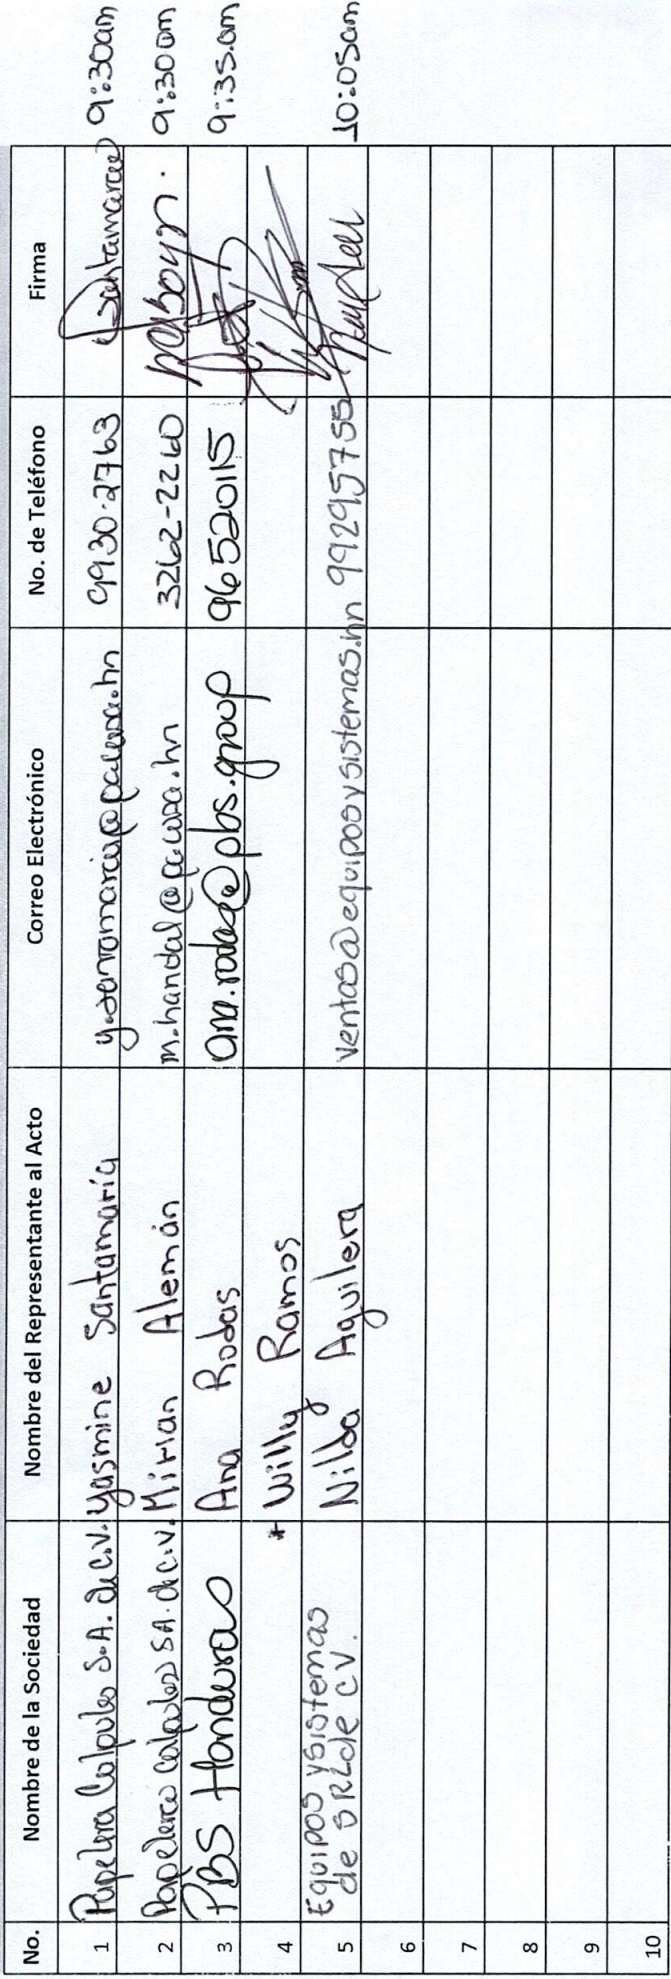 No. Nombre de la Sociedad Nombre del Representante al Acto Correo Electrónico No. de Teléfono Firma
1 Papelera Calpules S.A. de C.V. Yasmine Santamaría y.santamaria@pacasa.hn 9930-2763 Santamaria 9:30am
2 Papelera Calpules S.A. de C.V. Mirian Alemán m.handal@pacasa.hn 3262-2260 9:30am
3 PBS Honduras Ana Rodas ana.rodas@pbs.group 96520115 9:35am
4 * Willy Ramos
5 Equipos y Sistemas Nilda Aguilera ventas@equiposysistemas.hn 99295755 10:05am
de S RL de CV.
6
7
8
9
10